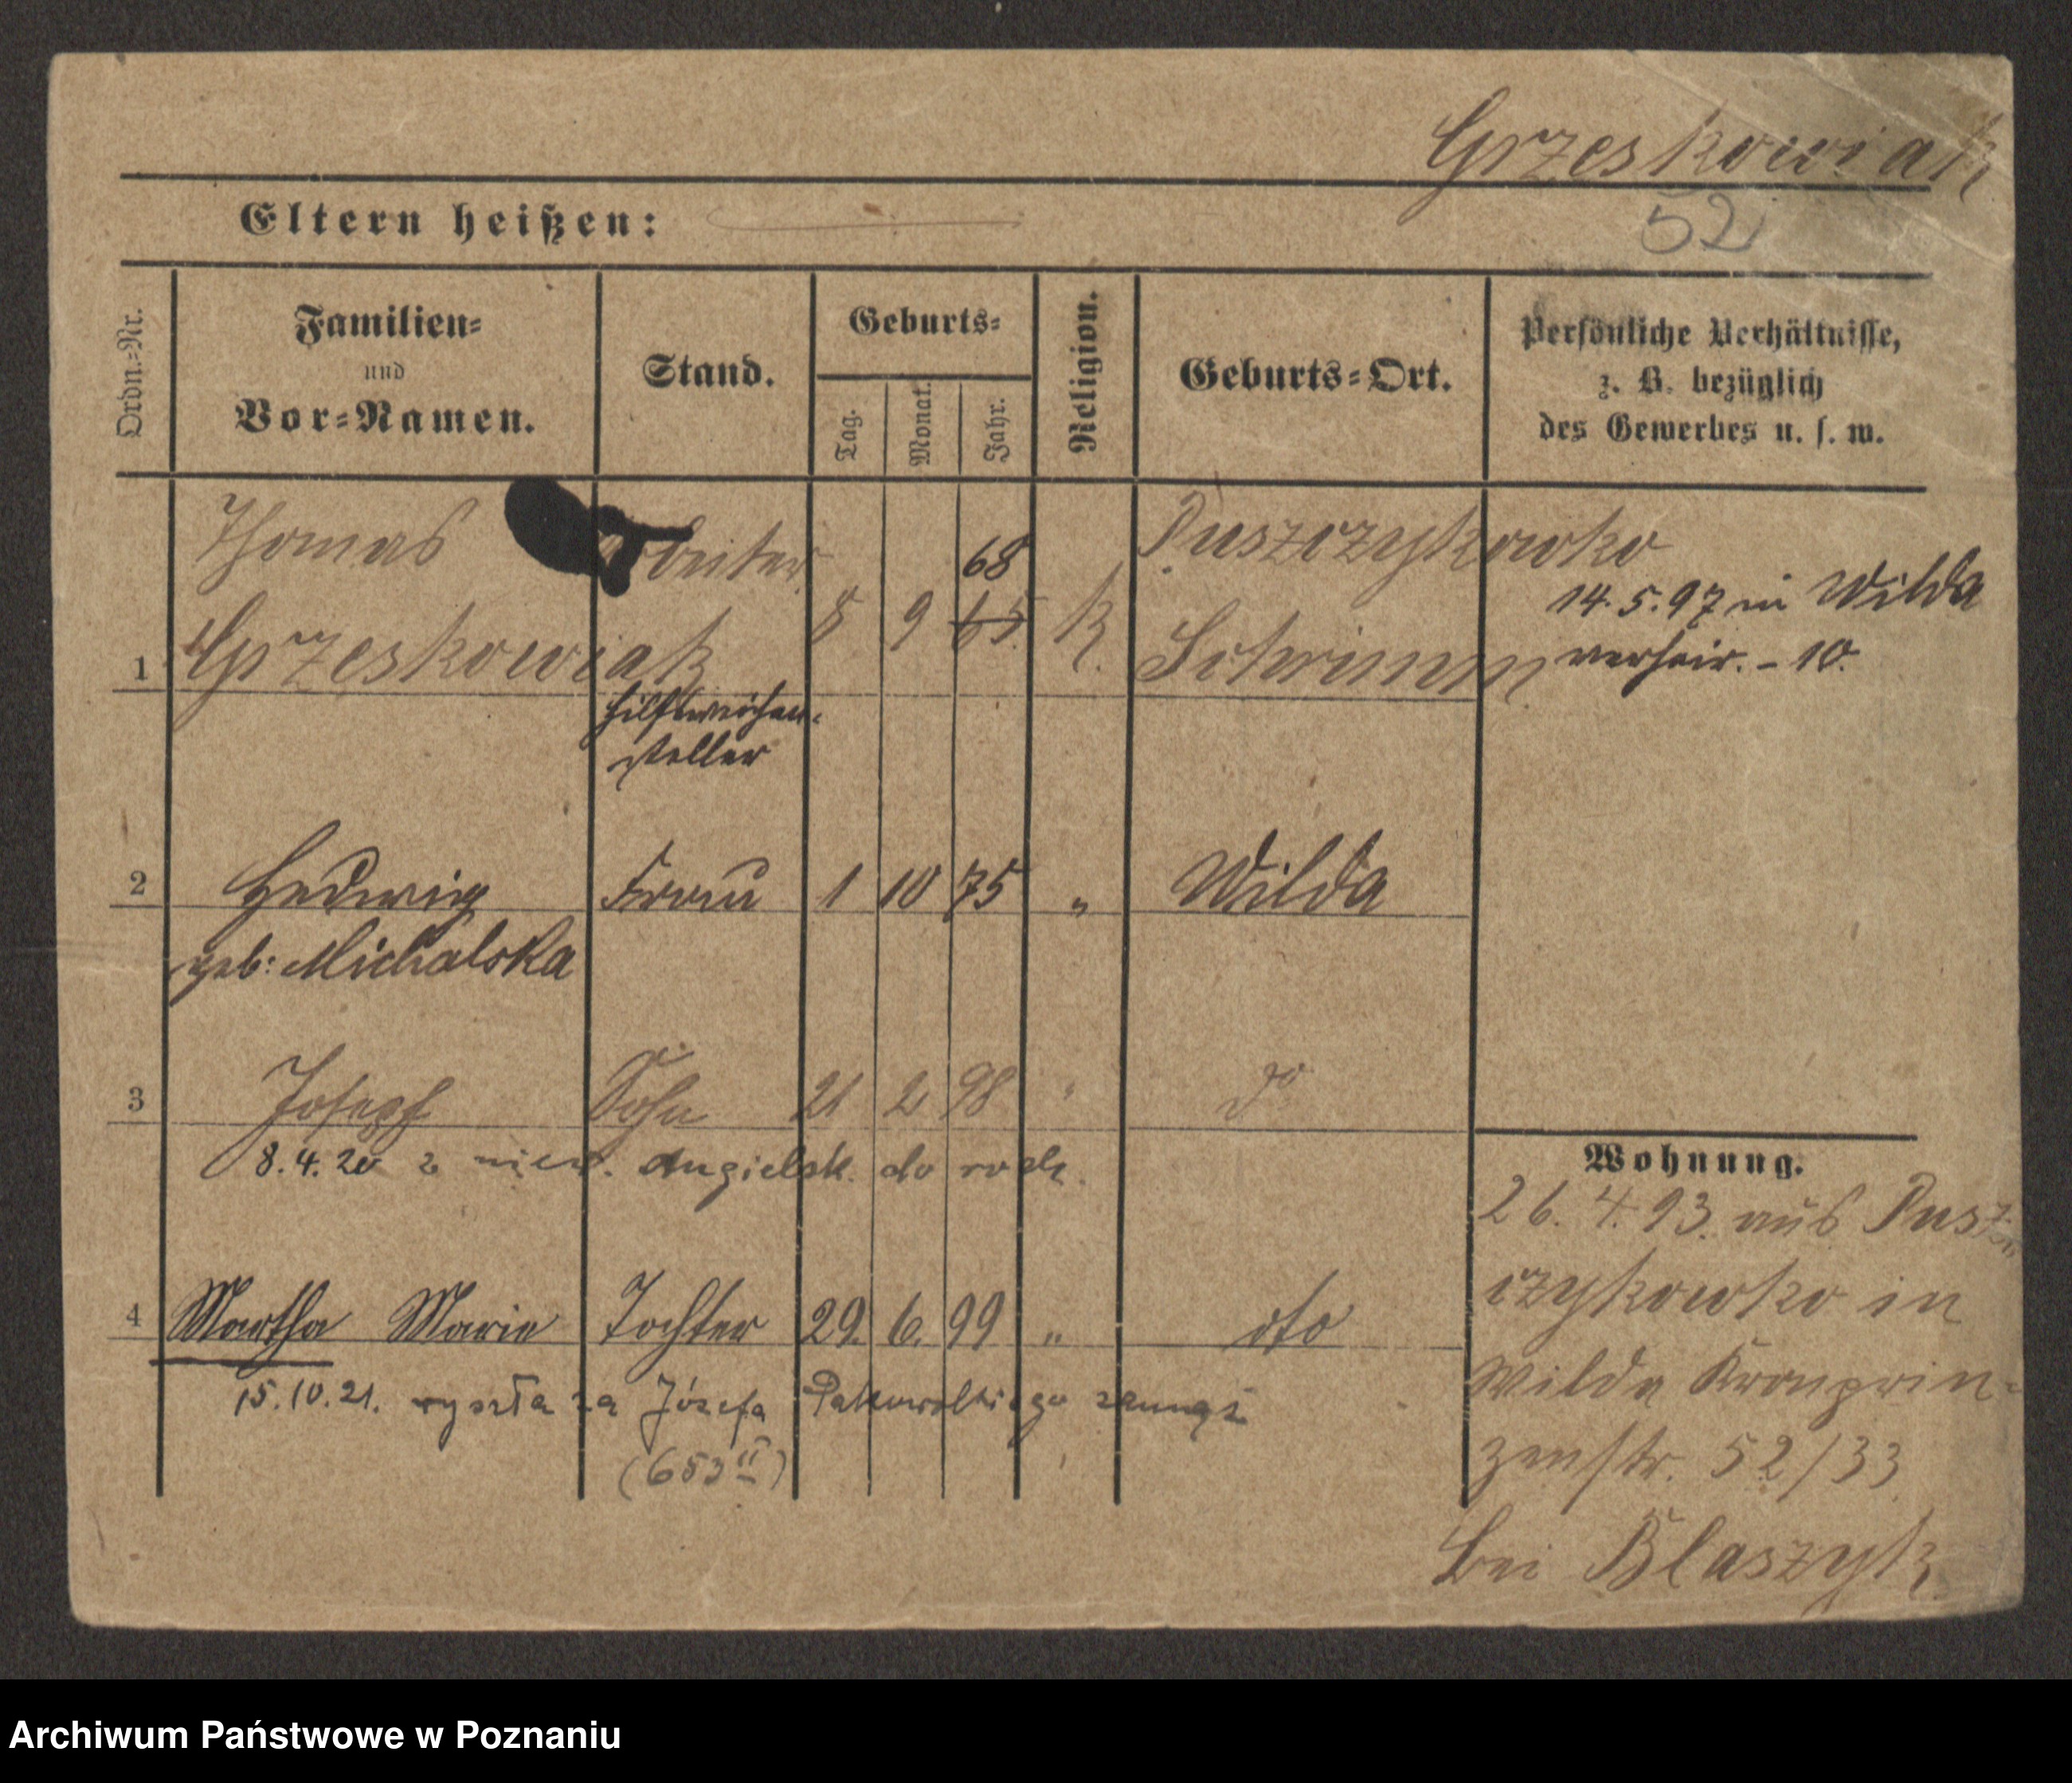 Grzeskowiak
52
Eltern heißen:
Ordn.-Nr.
Familien-
und
Vor-Namen.
Stand.
Geburts-
Tag.
Monat.
Jahr.
Religion.
Geburts-Ort.
Persönliche Verhältnisse,
z. B. bezüglich
des Gewerbes u. s. w.
Thomas Arbeiter 68 Puszczykowko
14.5.97 in Wilda
1 Grzeskowiak 8 9 65. K. Schrimm verheir. - 10.
Hilfsweichen-
steller
2 Hedwig Frau 1 10 75 " Wilda
geb: Michalska
3 Joseph Sohn 21 2 98 " do
8.4.20 z niew. Angielsk. do rodz.
Wohnung.
26.4.93. aus Pusz-
czykowko in
Wilda Kronprin-
zenstr. 52/33
bei Blaszyk
4 Martha Marie Tochter 29. 6. 99 " dto
15.10.21. wyszła za Józefa zamąż
(653 II)
Archiwum Państwowe w Poznaniu